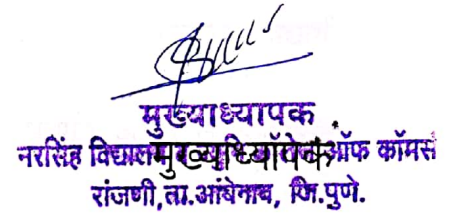 मुख्याध्यापक
नरसिंह विद्यालय मुख्याध्यापक ऑफ कॉमर्स
रांजणी,ता.आंबेगाव, जि.पुणे.